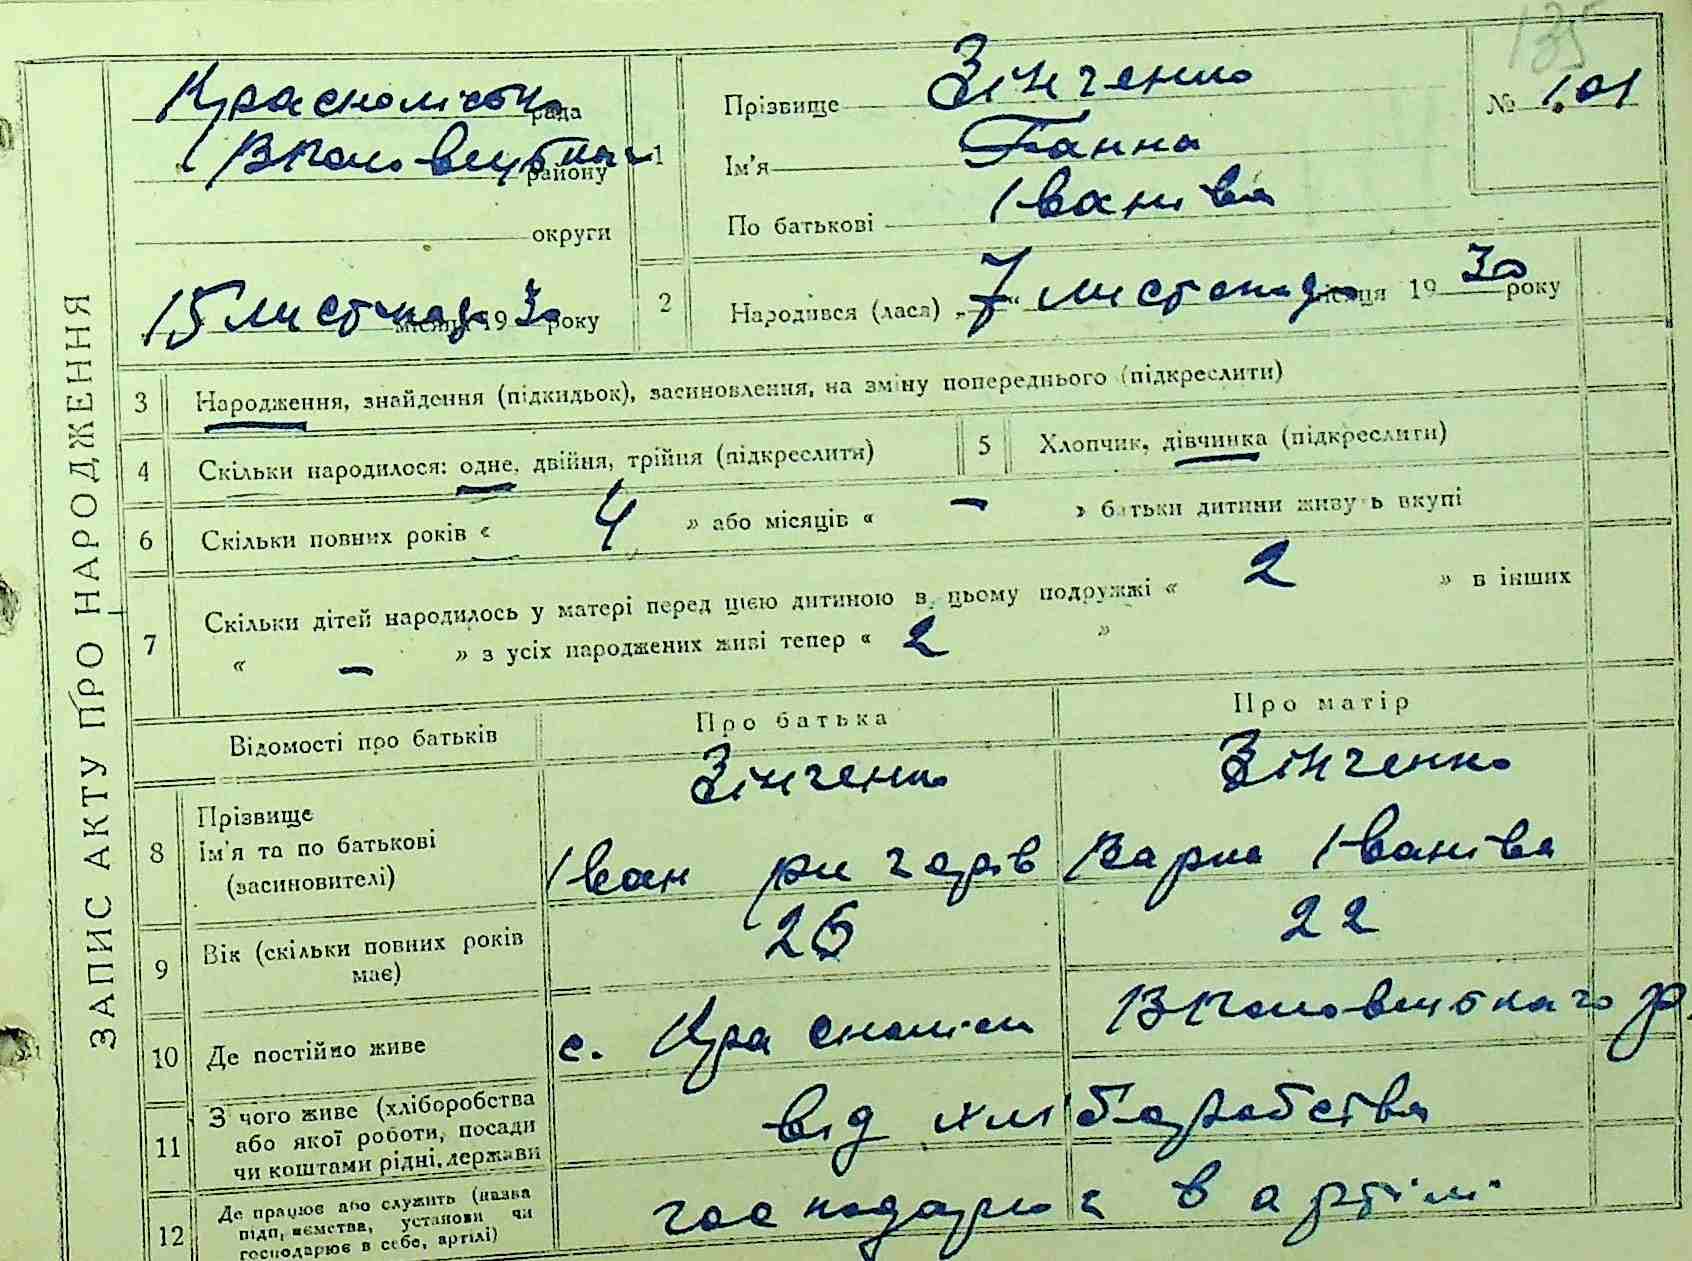 135
ЗАПИС АКТУ ПРО НАРОДЖЕННЯ
рада
району
округи
15 листопада місяця 1930 року
1
Прізвище Зінченко
Ім'я Ганна
По батькові Іванівна
№ 101
2
Народився (лася) „7“ листопада місяця 1930 року
3 Народження, знайдення (підкидьок), засиновлення, на зміну попереднього (підкреслити)
4 Скільки народилося: одне, двійня, трійня (підкреслити)
5 Хлопчик, дівчинка (підкреслити)
6 Скільки повних років « 4 » або місяців « – » батьки дитини живуть вкупі
7 Скільки дітей народилось у матері перед цією дитиною в цьому подружжі « 2 » в інших
« – » з усіх народжених живі тепер « 2 »
Відомості про батьків
Про батька
Про матір
8 Прізвище
Ім'я та по батькові
(засиновителі)
Зінченко
Іван
Зінченко
Іванівна
9 Вік (скільки повних років
має)
22
10 Де постійно живе
с.
р.
11 З чого живе (хліборобства
або якої роботи, посади
чи коштами рідні, держави
від хліборобства
12 Де працює або служить (назва
підприємства, установи чи
господарює в себе, артілі)
господарює в артілі